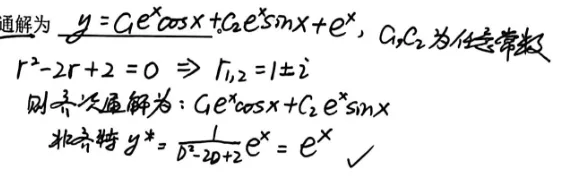 通解为 y=C₁eˣcosx+C₂eˣsinx+eˣ, C₁,C₂为任意常数
r²-2r+2=0 ⇒ r₁,₂=1±i
则齐次通解为: C₁eˣcosx+C₂eˣsinx
非齐特 y*= 1/(D²-2D+2) eˣ = eˣ ✓